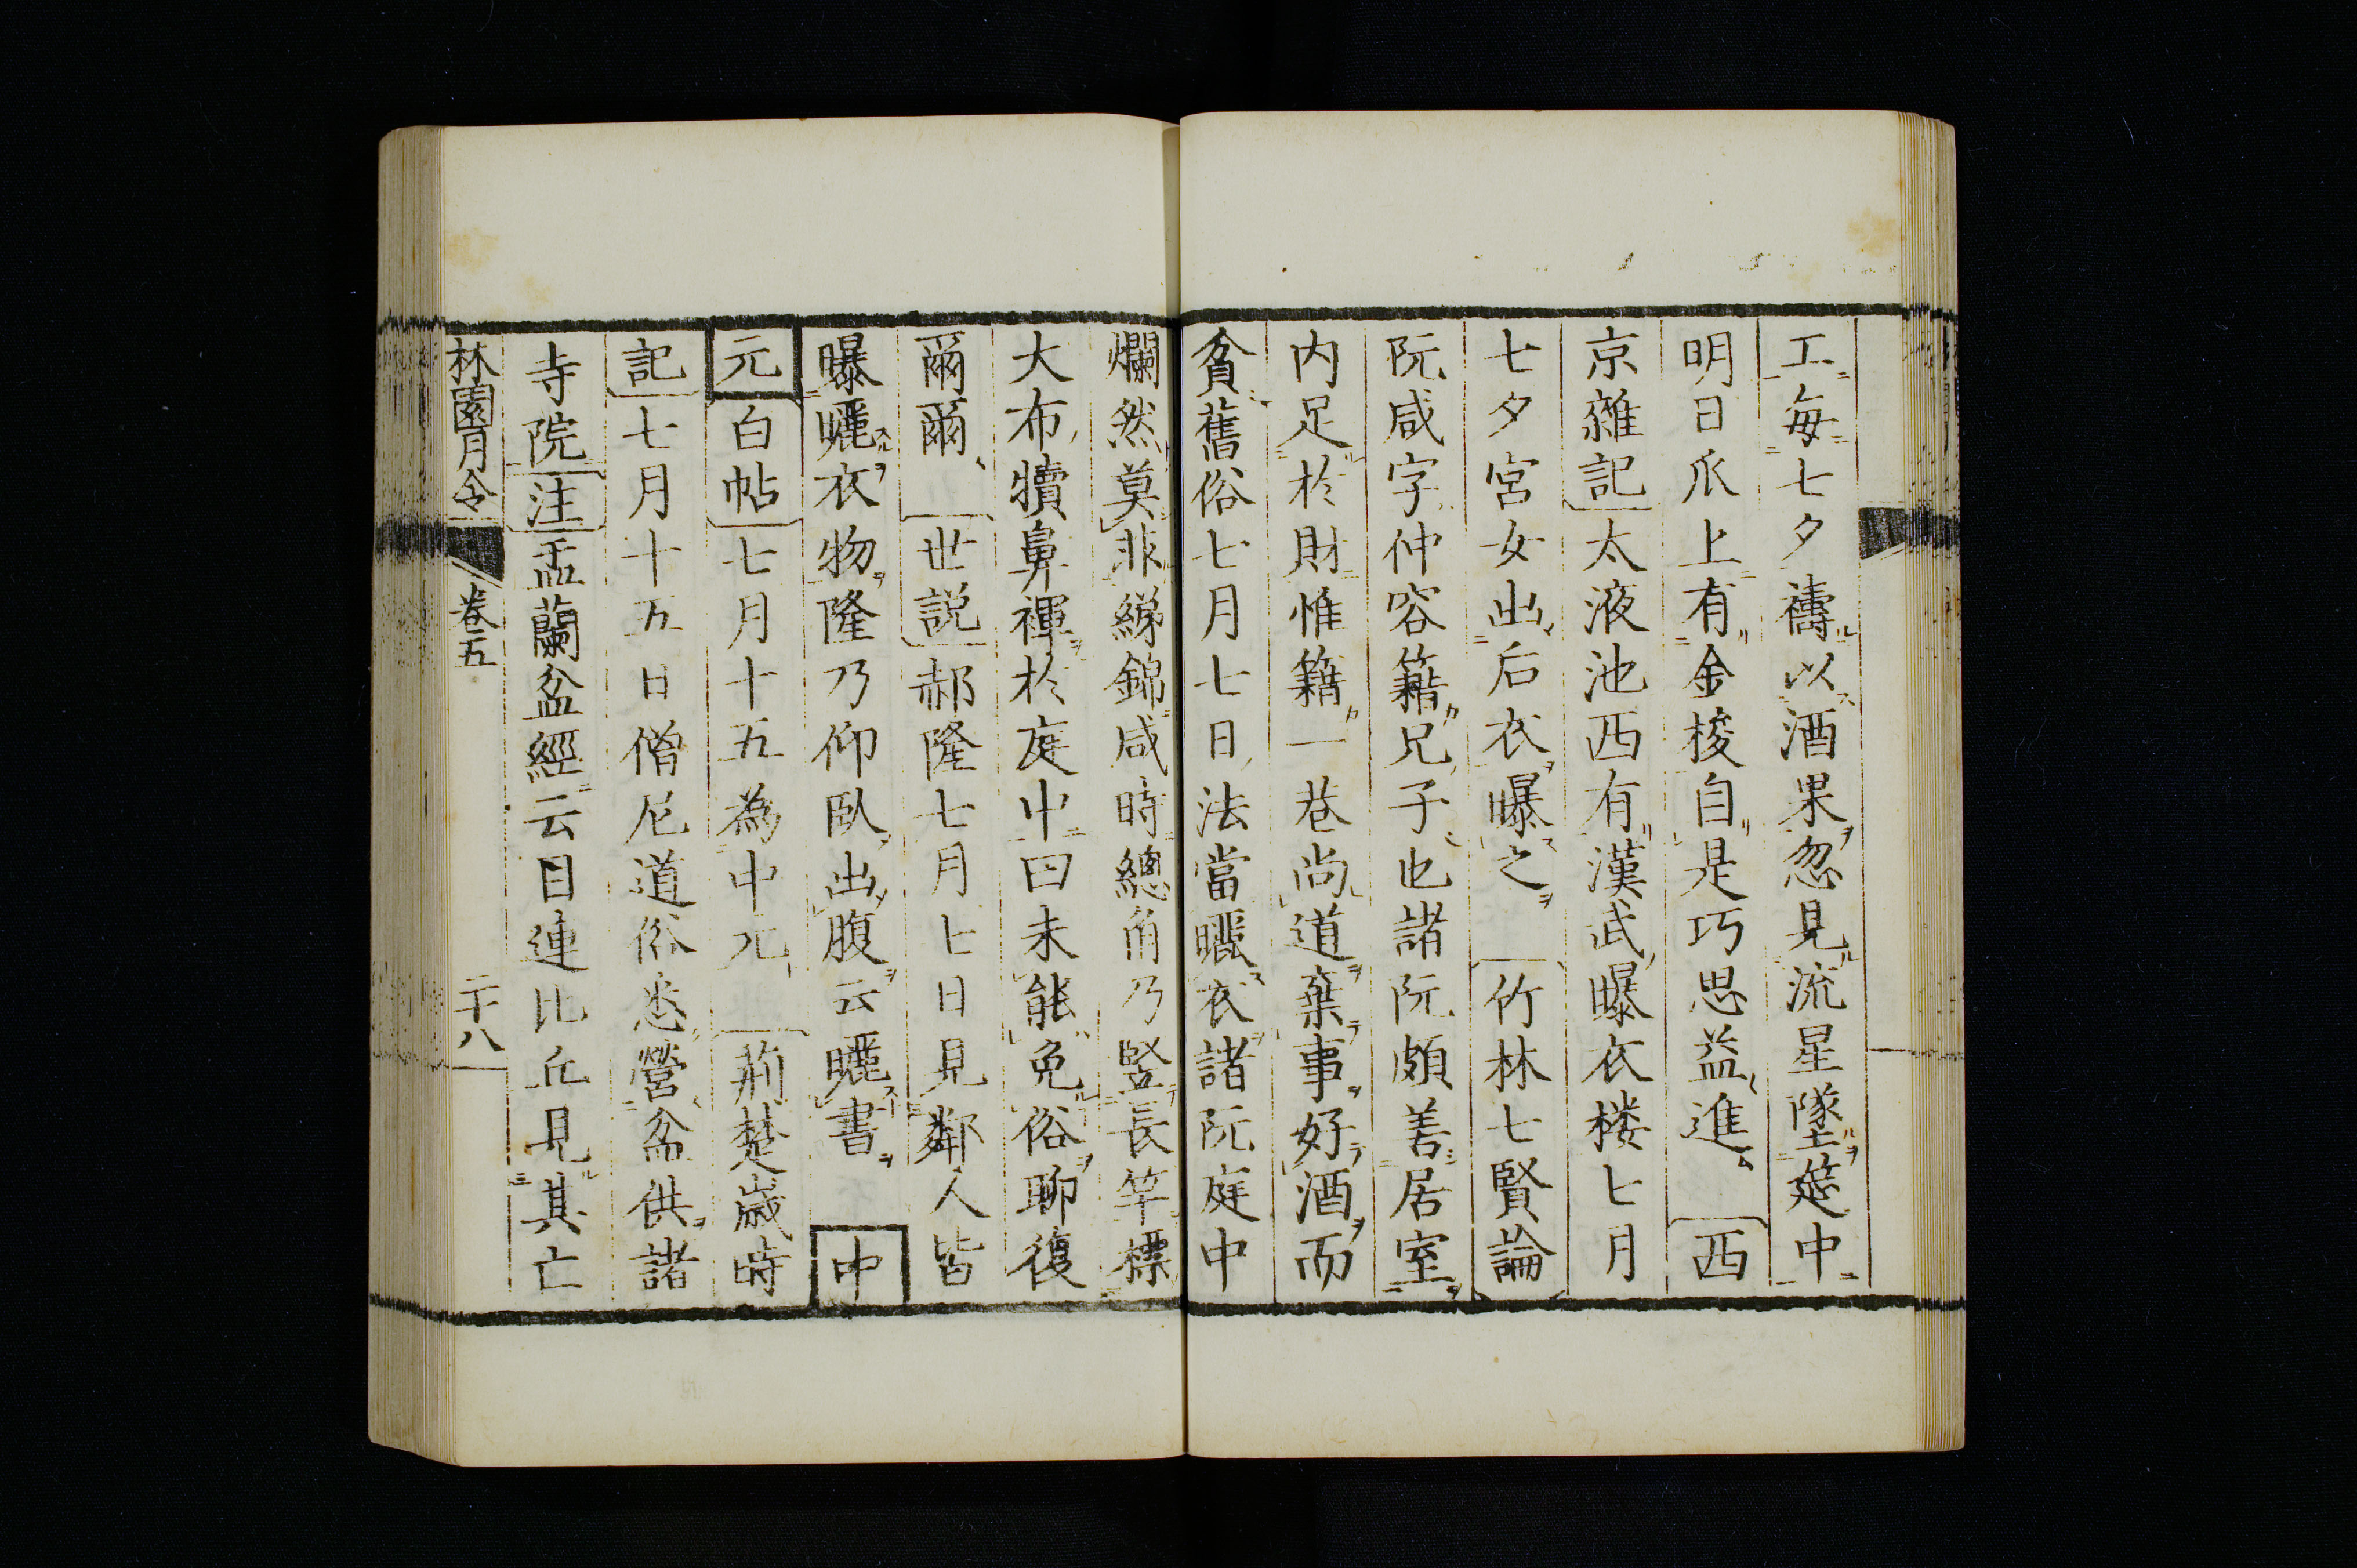 工毎七夕禱以酒果忽見流星墜筵中
明日爪上有金梭自是巧思益進西
京雜記太液池西有漢武曝衣楼七月
七夕宮女出后衣曝之竹林七賢論
阮咸字仲容籍兄子也諸阮頗善居室
内足於財惟籍一巷尚道棄事好酒而
貧舊俗七月七日法當曬衣諸阮庭中
爛然莫非綈錦咸時總角乃竪長竿標
大布犢鼻褌於庭中曰未能免俗聊復
爾爾世説郝隆七月七日見鄰人皆
曝曬衣物隆乃仰臥出腹云曬書中
元白帖七月十五為中元荊楚歲時
記七月十五日僧尼道俗悉營盆供諸
寺院注盂蘭盆經云目連比丘見其亡
林園月令 卷五 二十八